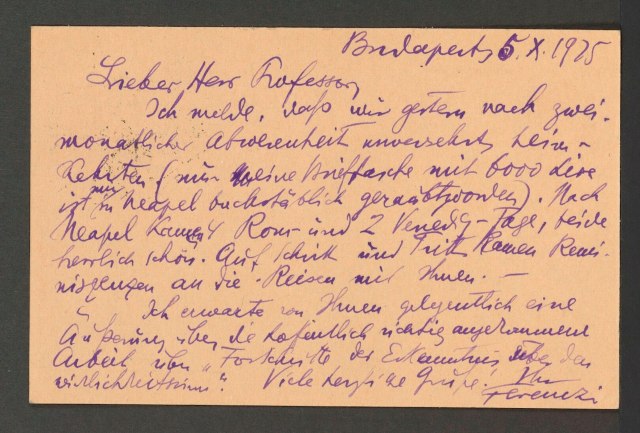 Budapest, 5.X.1925
Lieber Herr Professor,
Ich melde, daß wir gestern nach zwei-
monatlicher Abwesenheit unversehrt heim-
kehrten (nur meine Brieftasche mit 6000 Lire
ist mir in Neapel buchstäblich geraubt worden). Nach
Neapel kamen 4 Rom- und 2 Venedig-Tage, beide
herrlich schön. Auf Schritt und Tritt kamen Remi-
niszenzen an die Reisen mit Ihnen. —
Ich erwarte von Ihnen gelegentlich eine
Äußerung über die hoffentlich richtig angekommene
Arbeit über „Fortschritte der Erkenntnis über den
Wirklichkeitssinn". Viele herzliche Grüße! Ihr
Ferenczi